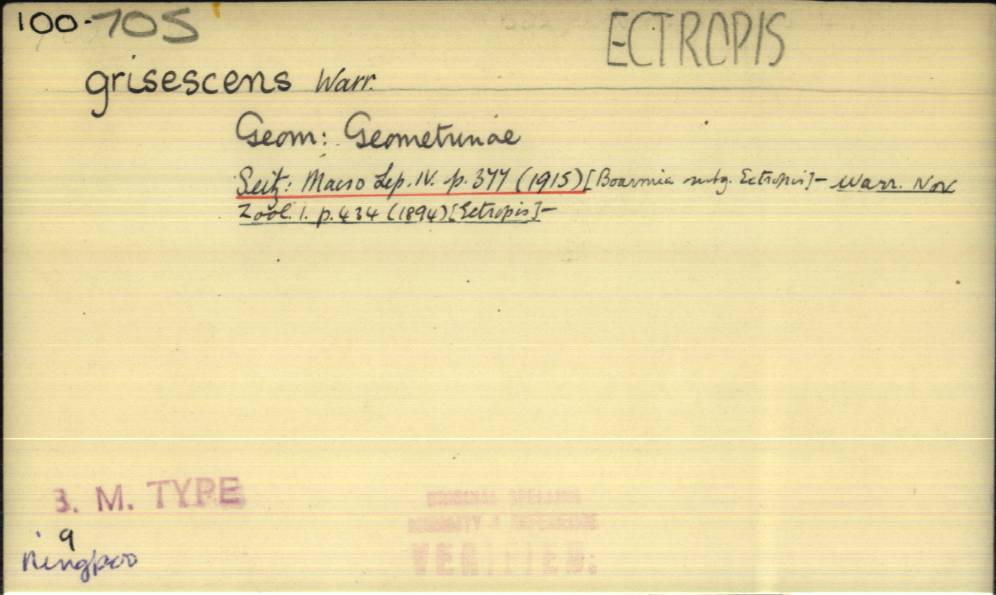 100-705
ECTROPIS
grisescens Warr.
Geom: Geometrinae
Seitz: Macro Lep. IV. p. 377 (1915) [Boarmia subg. Ectropis] - Warr. Nov
Zool. 1. p. 434 (1894) [Ectropis] -
B. M. TYPE
ORIGINAL SPELLING
AUTHORITY & REFERENCE
VERIFIED.
Ningpoo